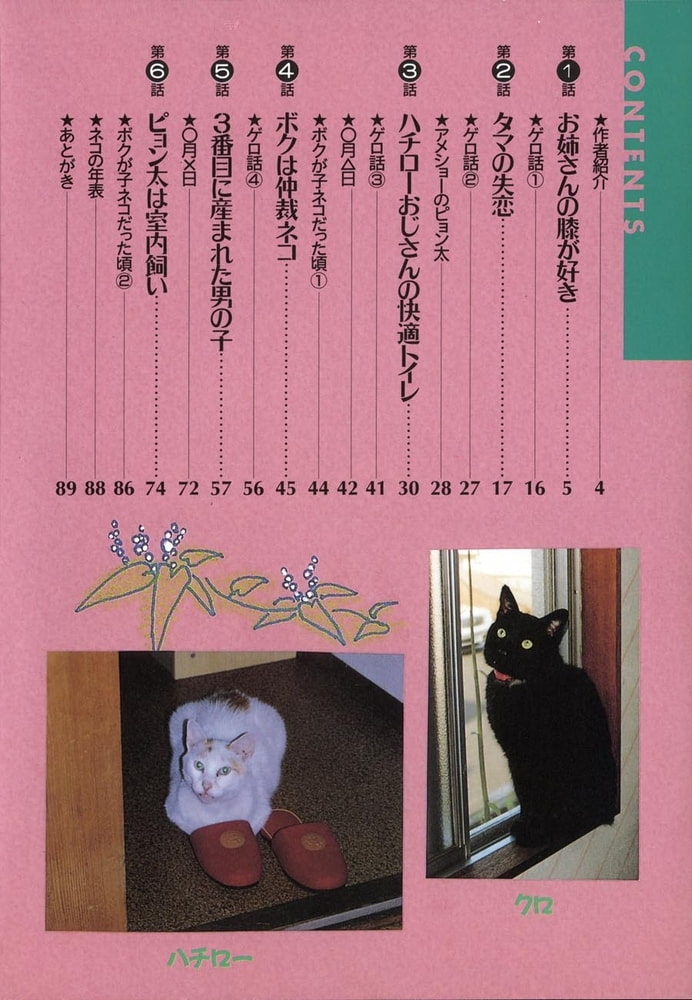 CONTENTS
★作者紹介 4
第1話 お姉さんの膝が好き 5
★ゲロ話① 16
第2話 タマの失恋 17
★ゲロ話② 27
★アメショーのピョン太 28
第3話 ハチローおじさんの快適トイレ 30
★ゲロ話③ 41
★〇月△日 42
★ボクが子ネコだった頃① 44
第4話 ボクは仲裁ネコ 45
★ゲロ話④ 56
第5話 3番目に産まれた男の子 57
★〇月×日 72
第6話 ピョン太は室内飼い 74
★ボクが子ネコだった頃② 86
★ネコの年表 88
★あとがき 89
クロ
ハチロー